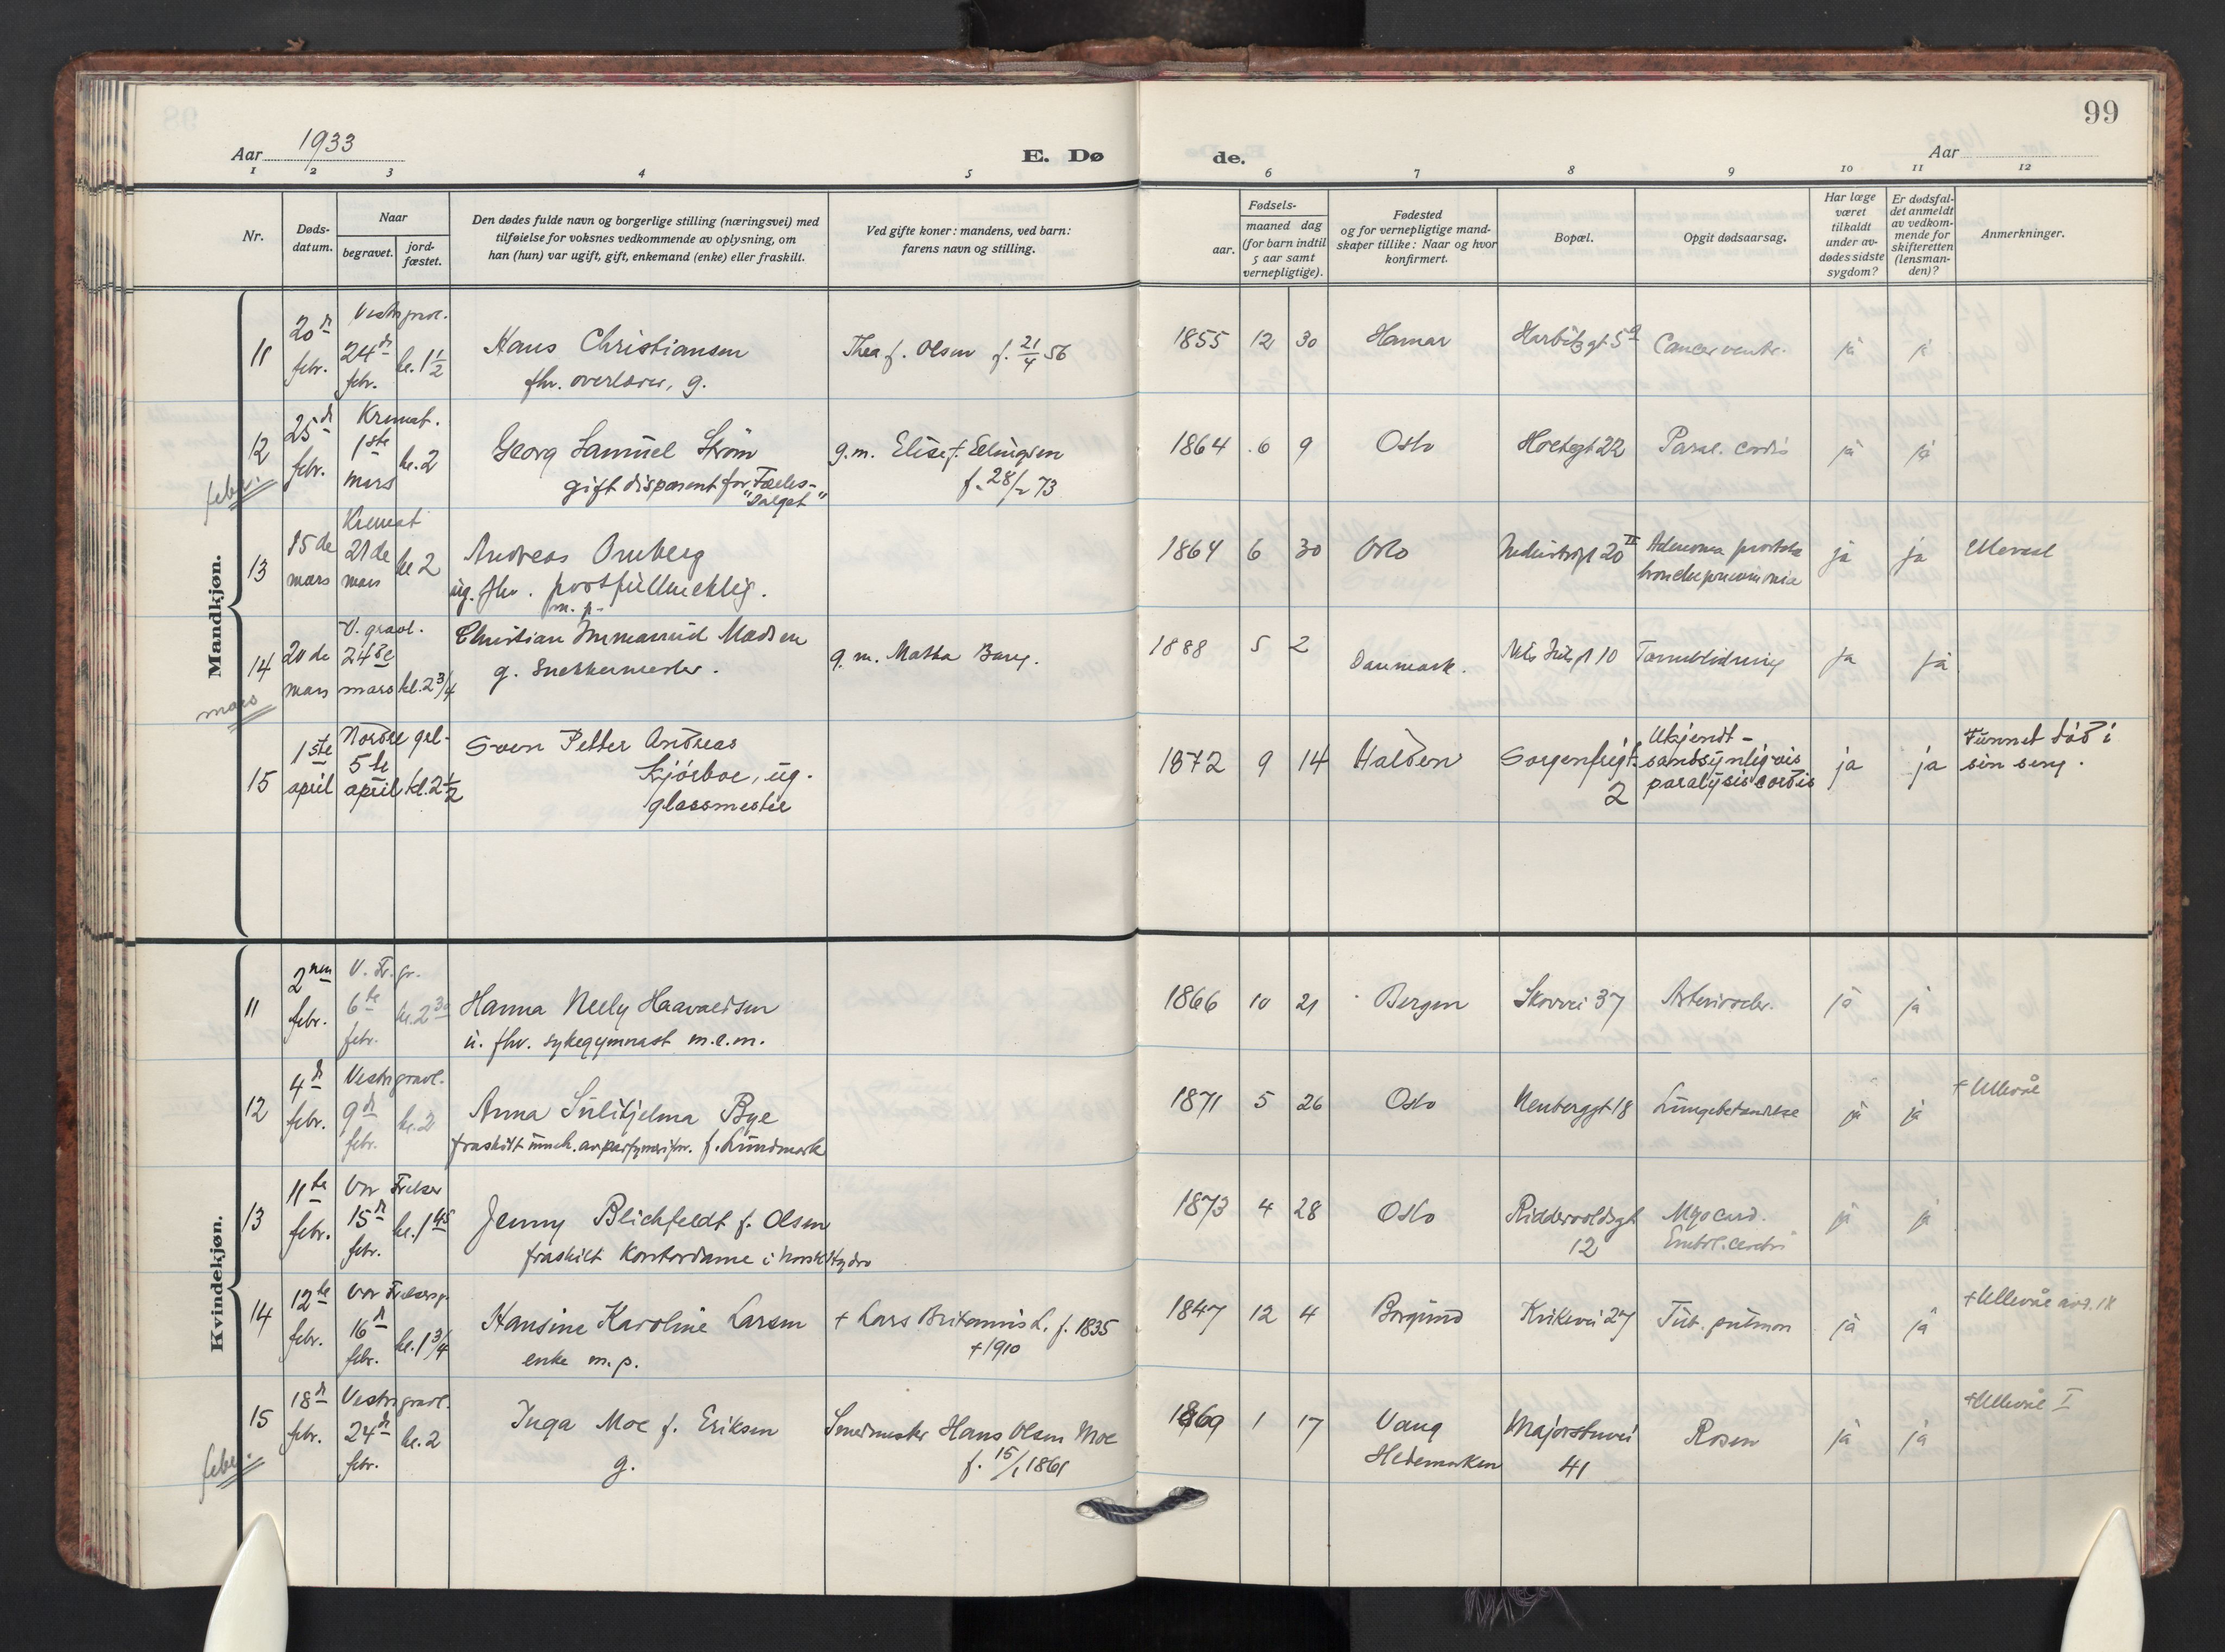 99
Aar 1933
E. Dø
de.
Aar
1 2 3 4 5 6 7 8 9 10 11 12
Nr.
Døds-
datum.
Naar
begravet.
jord-
fæstet.
Den dødes fulde navn og borgerlige stilling (næringsvei) med
tilføielse for voksnes vedkommende av oplysning, om
han (hun) var ugift, gift, enkemand (enke) eller fraskilt.
Ved gifte koner: mandens, ved barn:
farens navn og stilling.
Fødsels-
aar.
maaned dag
(for barn indtil
5 aar samt
vernepligtige).
Fødested
og for vernepligtige mand-
skaper tillike: Naar og hvor
konfirmert.
Bopæl.
Opgit dødsaarsag.
Har læge
været
tilkaldt
under av-
dødes sidste
sygdom?
Er dødsfal-
det anmeldt
av vedkom-
mende for
skifteretten
(lensman-
den)?
Anmerkninger.
Mandkjøn.
11 20de febr. Vestr. gravl. 24de febr. kl. 1 1/2
Hans Christiansen
fhv. overlærer, g.
Thea f. Olsen f. 21/4 56
1855 12 30 Hamar Harbitzgt 5a Cancer ventr. ja ja
12 25de febr. Kremat. 1ste mars kl. 2
Georg Samuel Strøm
gift disponent for "Fælles-
salget"
g.m. Elise f. Ellingsen
f. 28/2 73
1864 6 9 Oslo Holtegt 22 Paral. cordis ja ja
febr.
13 15de mars Kremat 21de mars kl 2
Andreas Omberg
ug. fhv. postfullmektig.
m. p.
1864 6 30 Oslo Industrigt 20 II Adenoma prostata
bronchopneumonia
ja ja Ulleval
14 20de mars V. gravl. 24de mars kl. 2 3/4
Christian Immanuel Madsen
g. Snekkermester.
g. m. Matha Barg.
1888 5 2 Danmark. Nils Juels gt 10 Tarmblødning ja ja
mars
15 1ste april Nordre grl. 5te april kl. 2 1/2
Sven Petter Andreas
Kjørboe, ug.
glassmester
1872 9 14 Halden Sorgenfrigt.
2
Ukjendt -
sandsynligvis
paralysis cordis
ja ja Funnet død i
sin seng.
Kvindekjøn.
11 2nen febr. V. Fr. gr. 6te febr. kl. 2 30
Hanna Nelly Haavaldsen
u. fhv. sykegymnast m.e.m.
1866 10 21 Bergen Skovvei 37 Arterioscler. ja ja
12 4de febr. Vestr. gravl. 9de febr. kl. 2
Anna Sulitjelma Bye
fraskilt inneh. av parfymeriforr. f. Lundmark
1871 5 26 Oslo Neuberggt 18 Lungebetændelse ja ja
† Ullevål
13 11te febr. Vor Frelser 15de febr. kl. 1 45
Jenny Blichfeldt f. Olsen
fraskilt kontordame i Norsk Hydro
1873 4 28 Oslo Riddervoldsgt
12
Myocard.
Embol. cerebri
ja ja
14 12te febr. Vor Frelsers gr. 16de febr. kl. 1 3/4
Hansine Karoline Larsen
enke m.p.
† Lars Britannius L. f. 1835
† 1910
1847 12 4 Borgund Kirkevei 27 Tub. pulmon ja ja
† Ullevål avd. IX
15 18de febr. Vestr. gravl. 24de febr. kl. 2
Inga Moe f. Eriksen
g.
Smedmester Hans Olsen Moe
f. 15/1 1861
1869 1 17 Vang
Hedemarken
Majorstuvei
41
Rosen ja ja
† Ullevål I
febr.